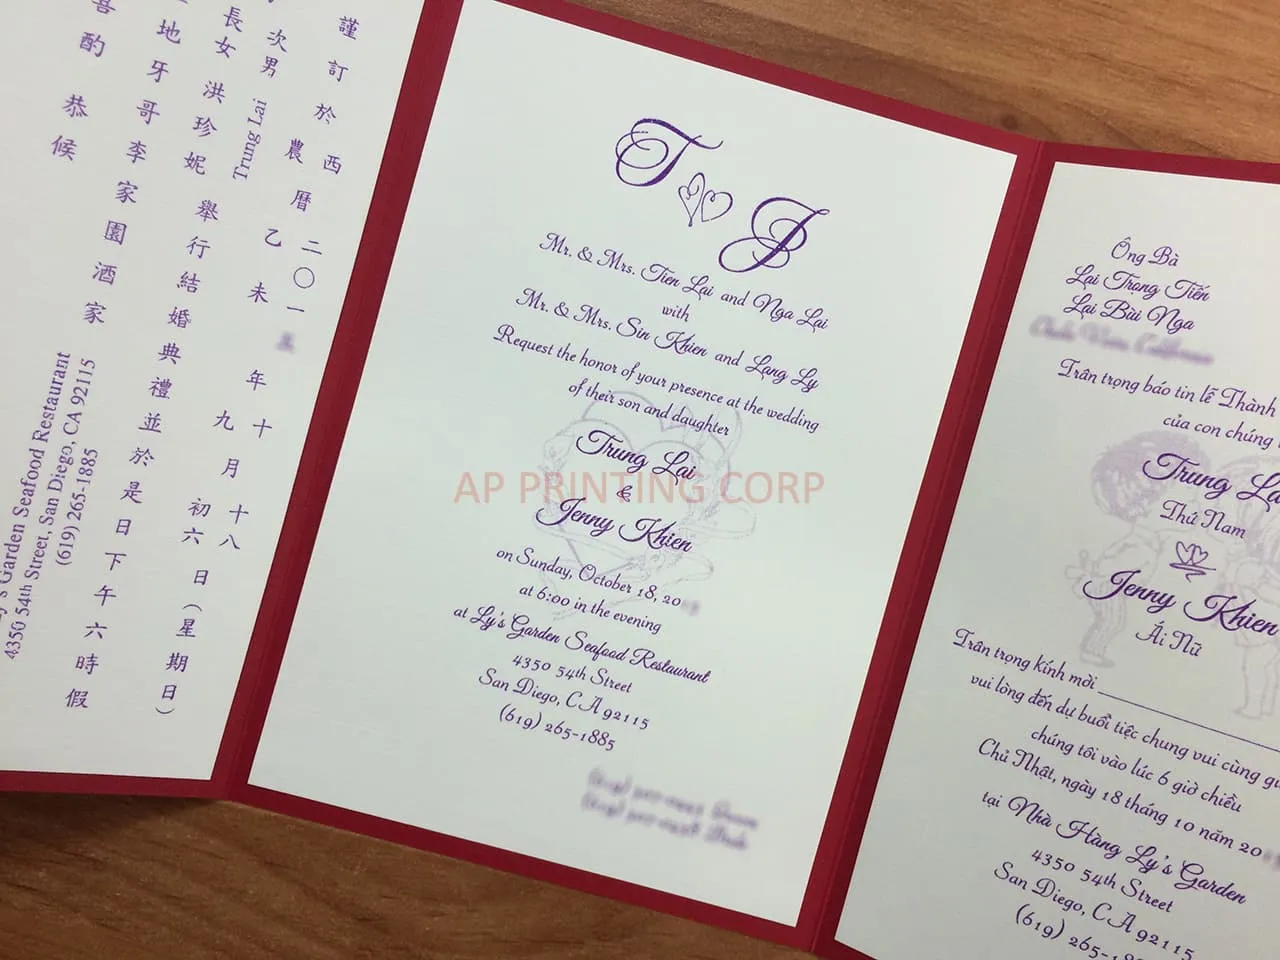 謹訂於西曆二〇一 年十月十八
農曆乙未年九月初六日（星期日）
次男 Trung Lai
長女 洪珍妮
舉行結婚典禮並於是日下午六時假
地牙哥李家園酒家
Garden Seafood Restaurant
4350 54th Street, San Diego, CA 92115
(619) 265-1885
喜酌
恭候
T J
Mr. & Mrs. Tien Lai and Nga Lai
with
Mr. & Mrs. Sin Khien and Lang Ly
Request the honor of your presence at the wedding
of their son and daughter
Trung Lai
&
Jenny Khien
on Sunday, October 18, 20
at 6:00 in the evening
at Ly's Garden Seafood Restaurant
4350 54th Street
San Diego, CA 92115
(619) 265-1885
AP PRINTING CORP
Ông Bà
Lại Trọng Tiến
Lại Bùi Nga
Trân trọng báo tin lễ Thành
của con chúng
Trung La
Thứ Nam
Jenny Khien
Ái Nữ
Trân trọng kính mời
vui lòng đến dự buổi tiệc chung vui cùng
chúng tôi vào lúc 6 giờ chiều
Chủ Nhật, ngày 18 tháng 10 năm 20
tại Nhà Hàng Ly's Garden
4350 54th Street
San Diego, CA 92115
(619) 265-1